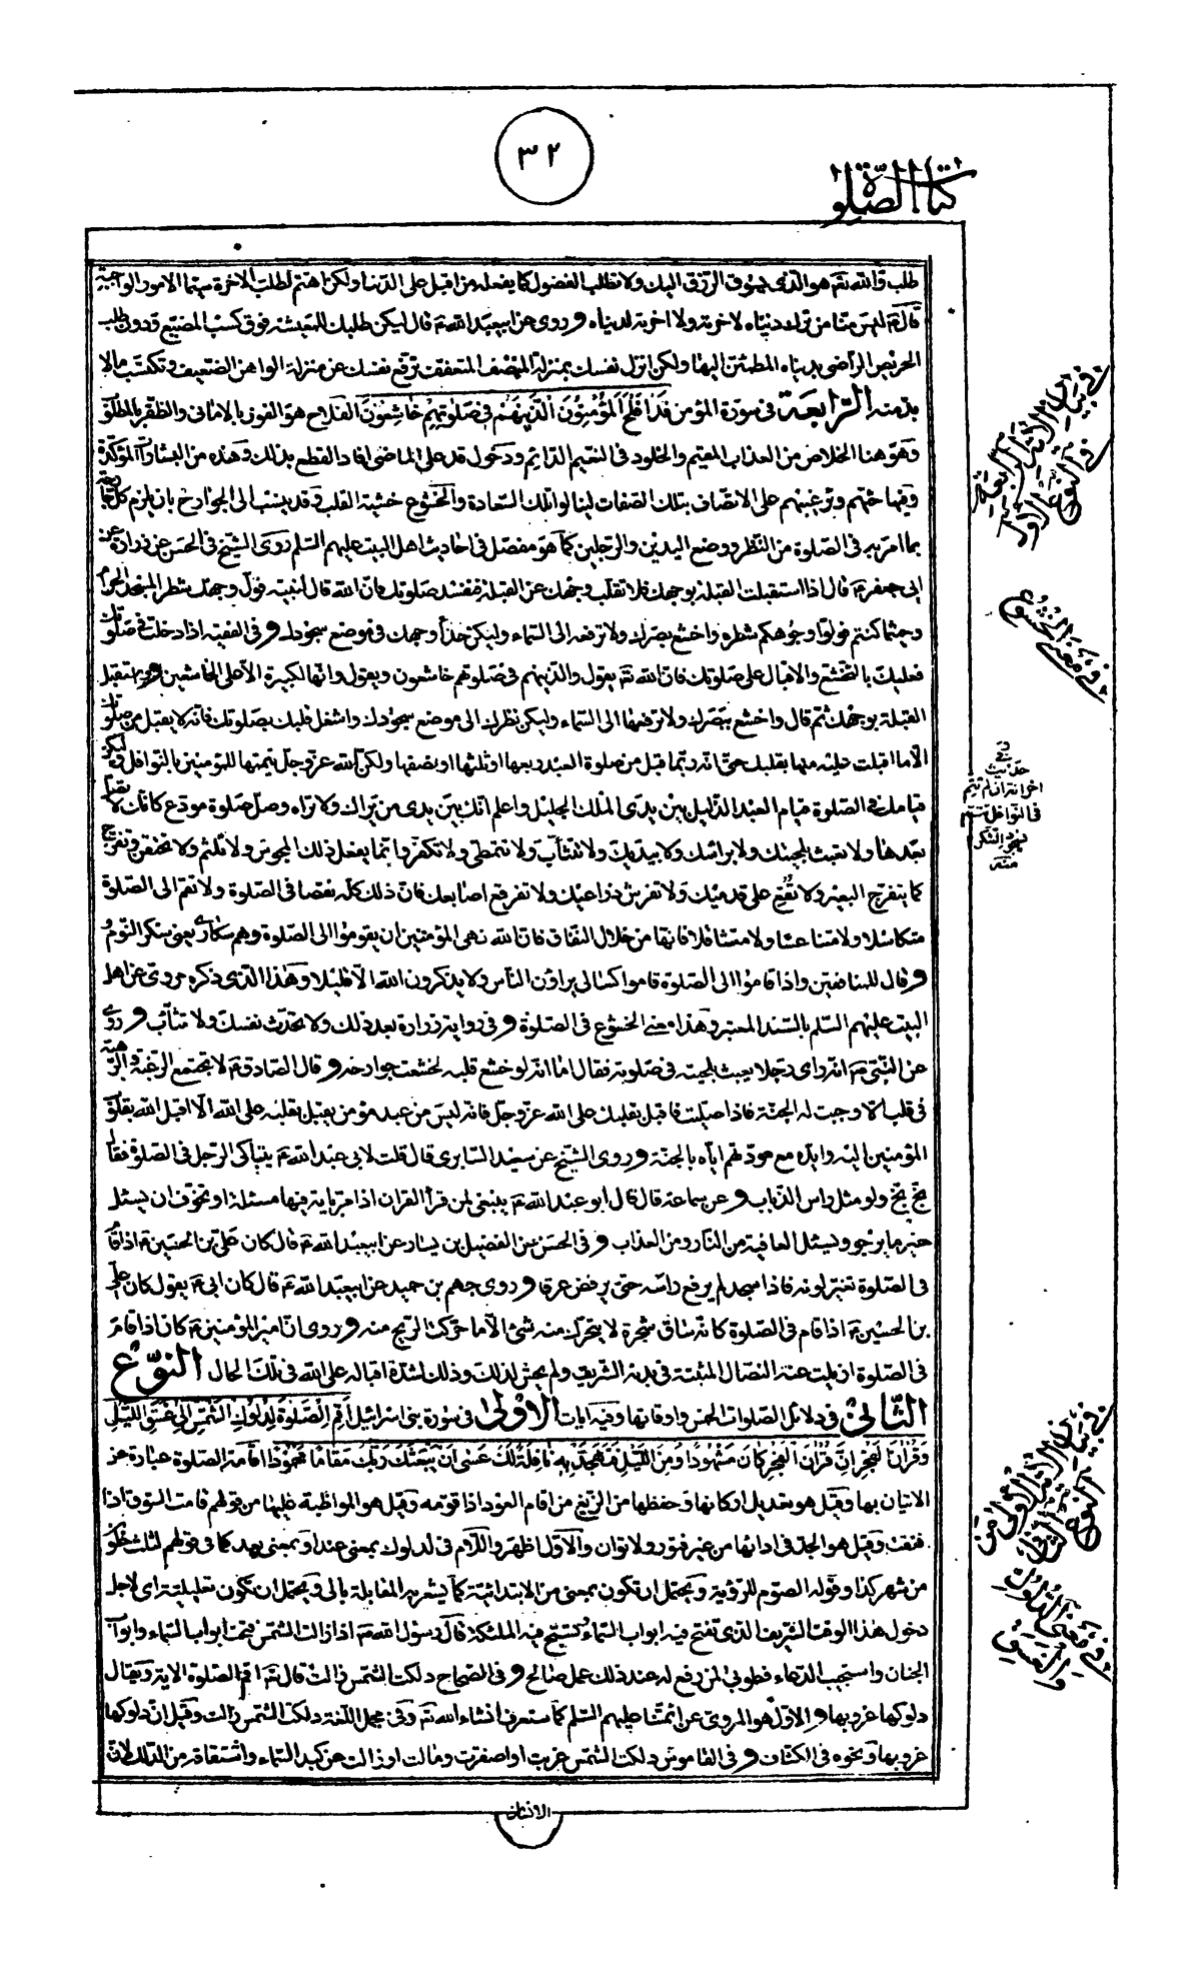 ٣٢
كتاب الصلوة
طلب والله تقم هو الذى يسوق الرزق اليك ولا تطلب الفضول كما يفعله من اقبل على الدنيا ولكن اهتم لطلب الاخرة سيما الامور الواجبة
قال ليس منا من ترك دنياه لاخرته ولا اخرته لدنياه وروى عن ابيعبد الله ع قال ليكن طلبك للمعيشة فوق كسب المضيع ودون طلب
الحريص الراضى بدنياه المطمئن اليها ولكن انزل نفسك بمنزلة المنصف المتعفف ترفع نفسك عن منزلة الواهن الضعيف وتكتسب ما لا
بد منه الرابعة فى سورة المؤمن قد افلح المؤمنون الذين هم فى صلوتهم خاشعون الفلاح هو الفوز بالامانى والظفر بالمطلوب
وهو هنا الخلاص من العذاب المقيم والخلود فى النعيم الدائم ودخول قد على الماضى افاد القطع بذلك وهذه من البشارات المؤكدة
وفيها حثهم وترغيبهم على الاتصاف بتلك الصفات لينالوا تلك السعادة والخشوع خشية القلب وقد ينسب الى الجوارح بان يلزم كل
بما امر به فى الصلوة من النظر ووضع اليدين والرجلين كما هو مفصل فى احاديث اهل البيت عليهم السلم روى الشيخ فى الحسن عن زرارة عن
ابى جعفر ع قال اذا استقبلت القبلة بوجهك فلا تقلب وجهك عن القبلة فتفسد صلوتك فان الله قال لنبيه فول وجهك شطر المسجد الحرام
وحيثما كنتم فولوا وجوهكم شطره واخشع ببصرك ولا ترفعه الى السماء وليكن حذاء وجهك فى موضع سجودك وفى الفقيه اذا دخلت فى صلوتك
فعليك بالتخشع والاقبال على صلوتك فان الله تقم يقول والذين هم فى صلوتهم خاشعون ويقول وانها لكبيرة الا على الخاشعين واستقبل
القبلة بوجهك ثم قال واخشع ببصرك ولا ترفعها الى السماء وليكن نظرك الى موضع سجودك واشغل قلبك بصلوتك فانه لا يقبل من صلوتك
الا ما اقبلت عليه منها بقلبك حتى انه ربما قبل من صلوة العبد ربعها او ثلثها او نصفها ولكن الله عز وجل يتمها للمؤمنين بالنوافل وليكن
قيامك فى الصلوة قيام العبد الذليل بين يدى الملك الجليل واعلم انك بين يدى من يراك ولا تراه وصل صلوة مودع كانك لا تصلى
بعدها ولا تعبث بلحيتك ولا براسك ولا بيديك ولا تتثائب ولا تتمطى ولا تكفر فانما يفعل ذلك المجوس ولا تلثم ولا تحتفز وتفرج
كما يتفرج البعير ولا تقع على قدميك ولا تفرش ذراعيك ولا تفرقع اصابعك فان ذلك كله نقصا فى الصلوة ولا تقم الى الصلوة
متكاسلا ولا متناعسا ولا متثاقلا فانها من خلال النفاق فان الله نهى المؤمنين ان يقوموا الى الصلوة وهم سكارى يعنى سكر النوم
وقال للمنافقين واذا قاموا الى الصلوة قاموا كسالى يراؤن الناس ولا يذكرون الله الا قليلا وهذا الذى ذكره مروى عن اهل
البيت عليهم السلم بالسند المعتبر وهذا معنى الخشوع فى الصلوة وفى رواية زرارة بعد ذلك ولا تحدث نفسك ولا تتثائب وروى
عن النبى ص انه راى رجلا يعبث بلحيته فى صلوته فقال اما انه لو خشع قلبه لخشعت جوارحه وقال الصادق ع لا تجتمع الرغبة والرهبة
فى قلب الا وجبت له الجنة فاذا صليت فاقبل بقلبك على الله عز وجل فانه ليس من عبد مؤمن يقبل بقلبه على الله الا اقبل الله بقلوب
المؤمنين اليه وايده مع مودتهم اياه بالجنة وروى الشيخ عن سعيد السابرى قال قلت لابى عبد الله ع يتباكى الرجل فى الصلوة فقال
بخ بخ ولو مثل راس الذباب وعن سماعة قال قال ابو عبد الله ع ينبغى لمن قرأ القران اذا مر باية فيها مسئلة او تخوف ان يسئل
خير ما يرجو ويسئل العافية من النار ومن العذاب وفى الحسن عن الفضيل بن يسار عن ابيعبد الله ع قال كان على بن الحسين ع اذا قام
فى الصلوة تغير لونه فاذا سجد لم يرفع راسه حتى يرفض عرقا وروى جهم بن حميد عن ابيعبد الله ع قال كان ابى ع يقول كان على
بن الحسين ع اذا قام فى الصلوة كانه ساق شجرة لا يتحرك منه شئ الا ما حركت الريح منه وروى ان امير المؤمنين ع كان اذا قام
فى الصلوة ازيلت عنه النصال المثبتة فى بدنه الشريف ولم يحس لذلك وذلك لشدة اقباله على الله فى تلك الحال النوع
الثانى فى دلائل الصلوات الخمس واوقاتها وفيه ايات الاولى فى سورة بنى اسرائيل اقم الصلوة لدلوك الشمس الى غسق الليل
وقران الفجر ان قران الفجر كان مشهودا ومن الليل فتهجد به نافلة لك عسى ان يبعثك ربك مقاما محمودا اقامة الصلوة عبارة عن
الاتيان بها وقيل هو تعديل اركانها وحفظها من الزيغ من اقام العود اذا قومه وقيل هو المواظبة عليها من قولهم قامت السوق اذا
نفقت وقيل هو الجد فى ادائها من غير فتور ولا توان والاول اظهر واللام فى لدلوك بمعنى عند او بمعنى بعد كما فى قولهم لثلث خلون
من شهر كذا وقوله الصوم للرؤية ويحتمل ان تكون بمعنى من الابتدائية كما يشعر به المقابلة بالى ويحتمل ان تكون تعليلية اى لاجل
دخول هذا الوقت الشريف الذى تفتح فيه ابواب السماء وتسبح فيه الملئكة قال رسول الله ص اذا زالت الشمس فتحت ابواب السماء وابواب
الجنان واستجيب الدعاء فطوبى لمن رفع له عند ذلك عمل صالح وفى الصحاح دلكت الشمس زالت قال تم اقم الصلوة الاية ويقال
دلوكها غروبها والاول هو المروى عن ائمتنا عليهم السلم كما ستعرف انشاء الله تم وفى مجمل اللغة دلكت الشمس زالت وقيل ان دلوكها
غروبها ونحوه فى الكشاف وفى القاموس دلكت الشمس غربت او اصفرت ومالت او زالت عن كبد السماء واشتقاقه من الدلك لان
الانسان
فى بيان الاية الرابعة من النوع الاول
فى معنى الخشوع
فى حديث اخر انه النوافل
فى بيان الاية الاولى من النوع الثانى
فى معنى الدلوك والغسق